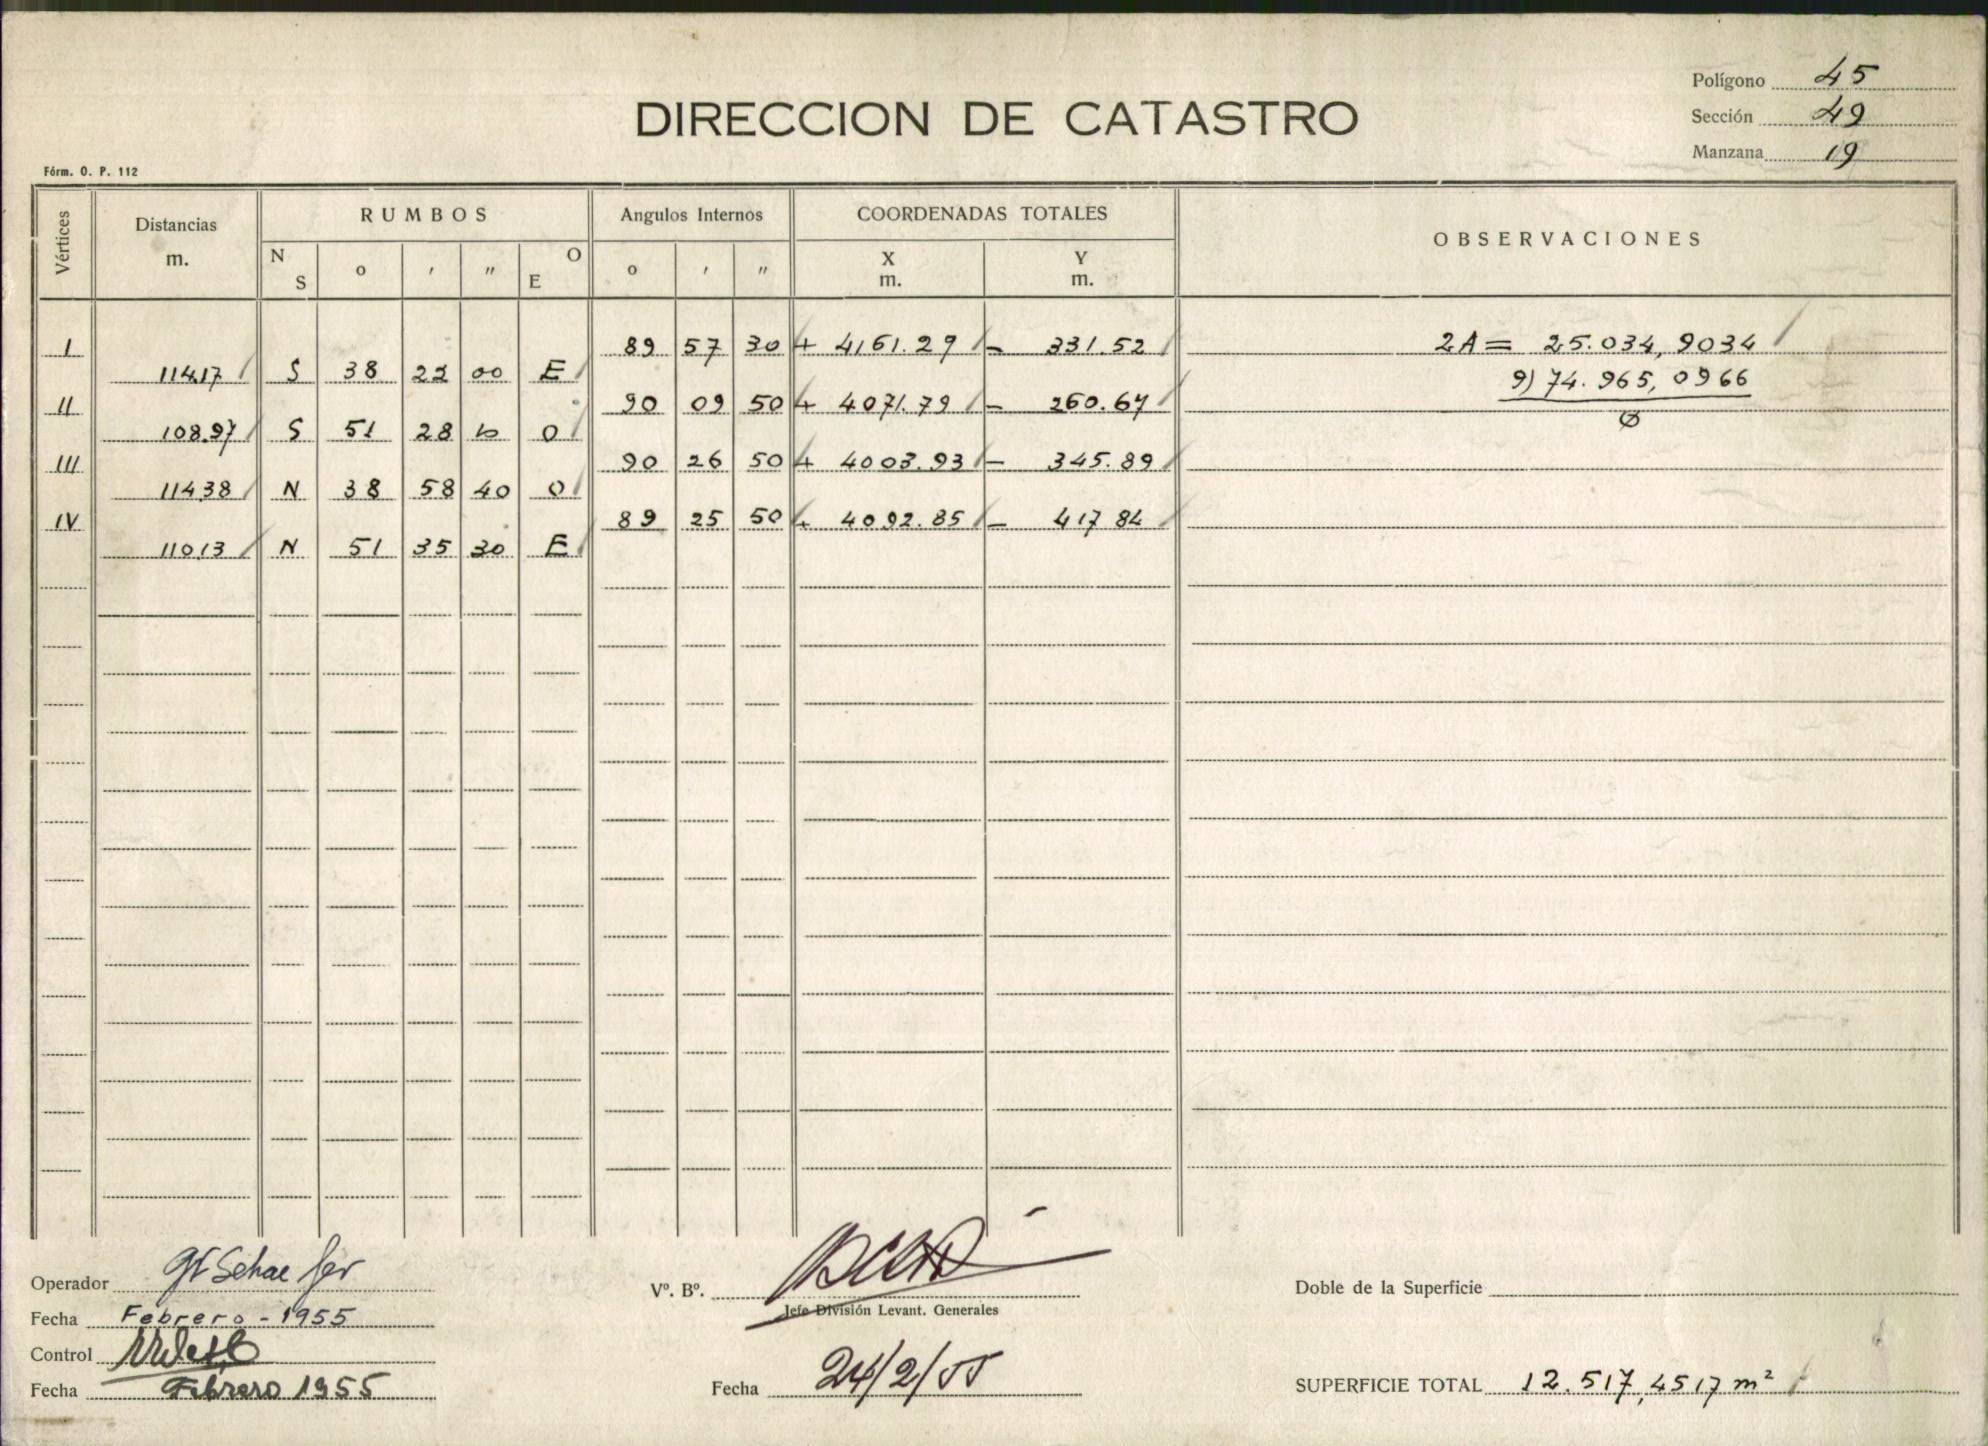 Polígono 45
Sección 49
Manzana 19
DIRECCION DE CATASTRO
Fórm. O. P. 112
Vértices Distancias m. RUMBOS N S o ' " O E Angulos Internos o ' " COORDENADAS TOTALES X m. Y m. OBSERVACIONES
I 89 57 30 + 4161.29 - 331.52 2A = 25.034,9034
114.17 S 38 22 00 E 9) 74.965,0966
II 90 09 50 + 4071.79 - 260.64 0
108.97 S 51 28 10 O
III 90 26 50 + 4003.93 - 345.89
114.38 N 38 58 40 O
IV 89 25 50 + 4092.85 - 417.84
110.13 N 51 35 30 E
Operador Schaefer
Fecha Febrero - 1955
Control
Fecha Febrero 1955
Vº. Bº.
Jefe División Levant. Generales
Fecha 24/2/55
Doble de la Superficie
SUPERFICIE TOTAL 12.517,4517 m²